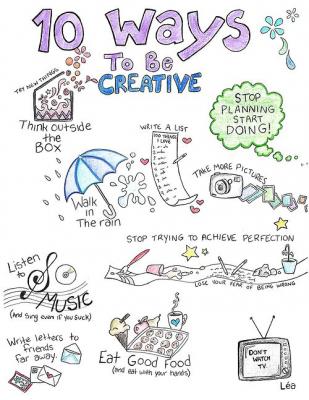 10 Ways
To Be
CREATIVE
TRY NEW THINGS
Think outside
the
Box
STOP
PLANNING
START
DOING!
WRITE A LIST
100 THINGS
I LOVE
Walk
in
The rain
TAKE MORE PICTURES
STOP TRYING TO ACHIEVE PERFECTION
LOSE YOUR FEAR OF BEING WRONG
Listen
to
MUSIC
(And sing even if you suck)
Write letters to
friends
far away.
Eat Good Food
(and eat with your hands)
DON'T
WATCH
T.V.
Léa